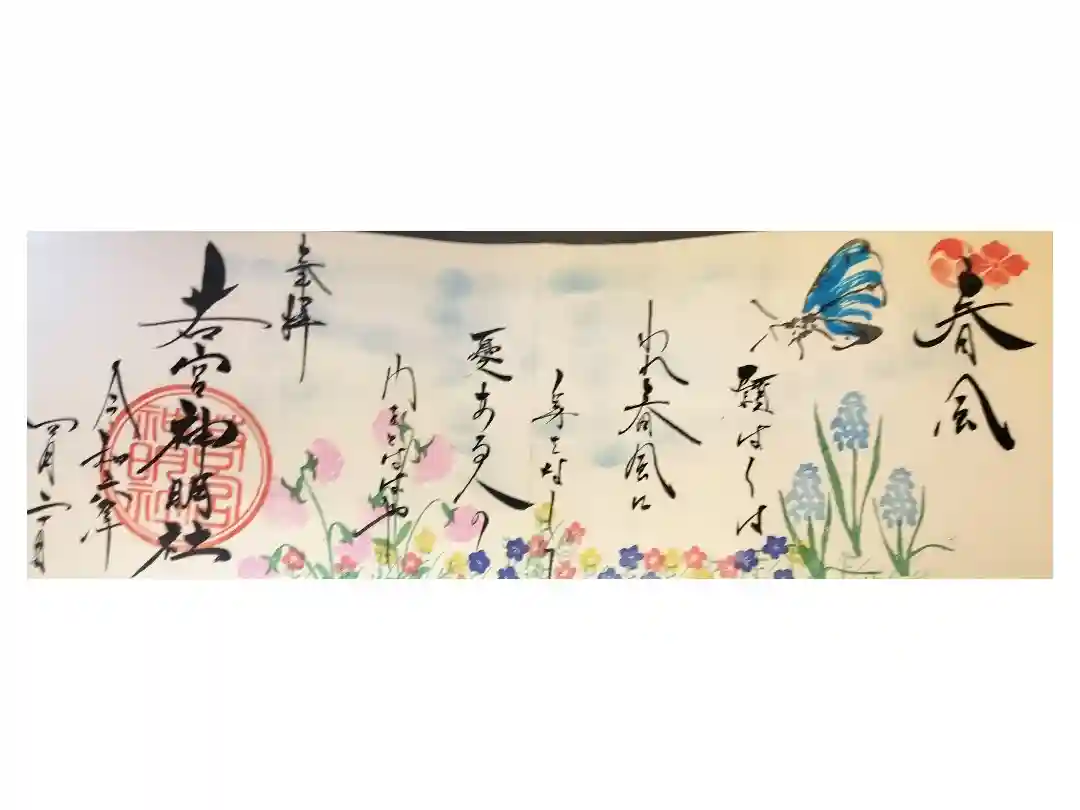 春風
願はくは
われ春風に
身をなして
憂ある人の
門をとはばや
奉拝
若宮神明社
若宮神明社
令和 年
四月 日